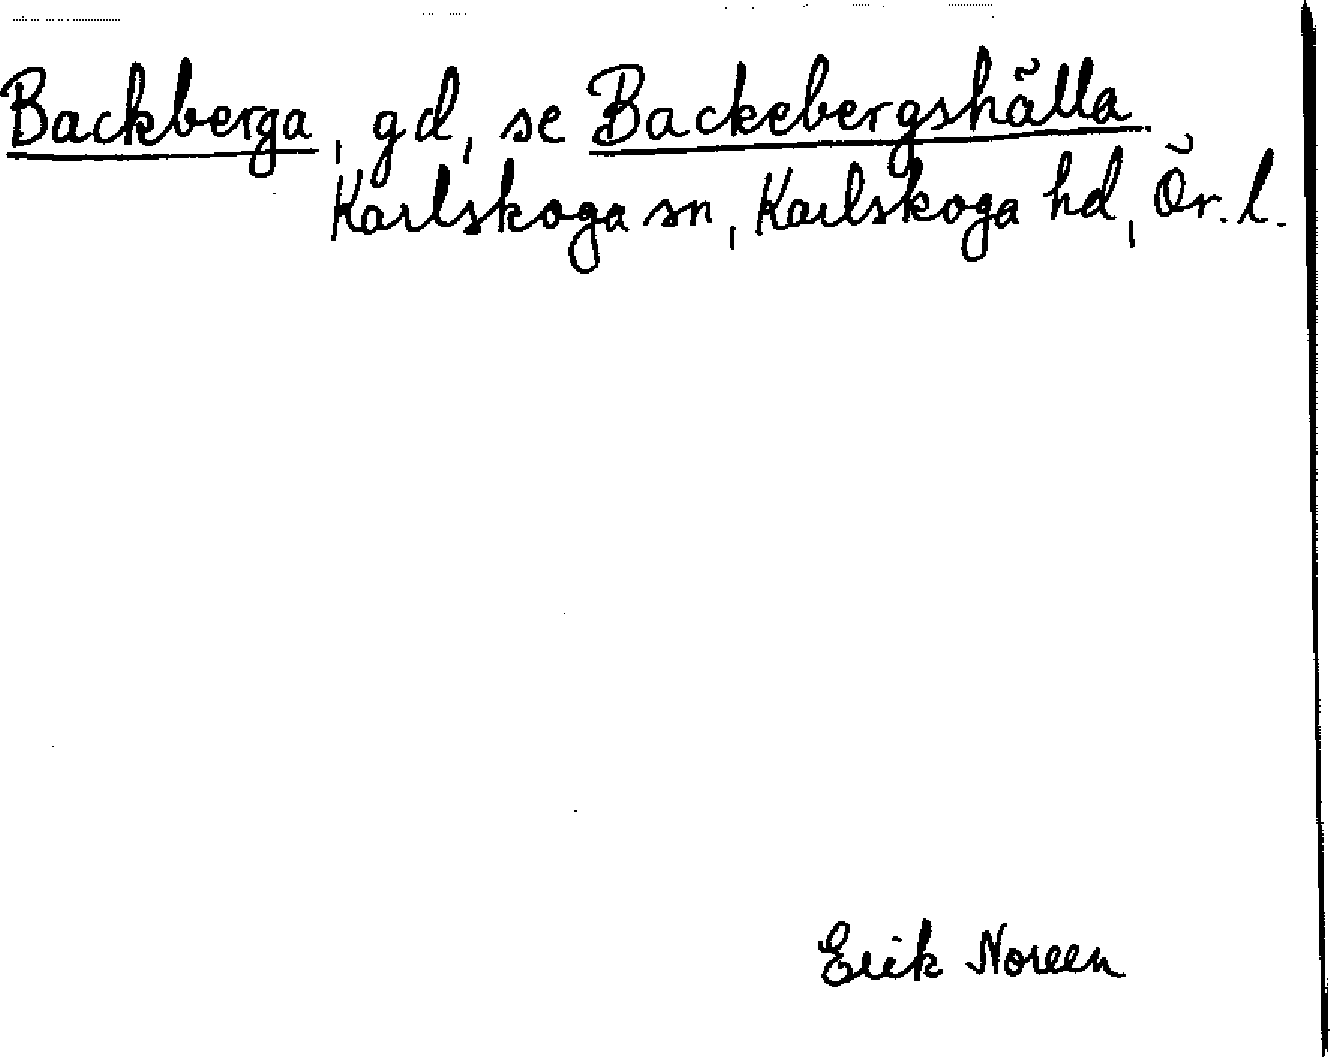 Backberga, gd, se Backebergshälla
Karlskoga sn, Karlskoga hd, Ör. l.
Erik Noreen